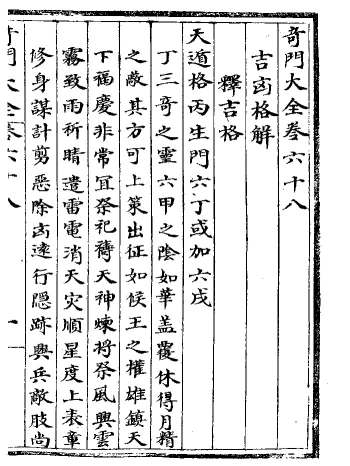 奇門大全卷六十八
吉凶格解
釋吉格
天道格丙生門六丁或加六戊
丁三奇之靈六甲之陰如華盖覆休得月精
之蔽其方可上策出征如侯王之權雄鎮天
下福慶非常宜祭祀薦天神煉将祭風興雲
霧致雨祈晴遣雷電消天灾順星度上表章
修身謀計剪惡除凶遠行隱跡興兵敵敗尚
奇門大全卷六十八
一